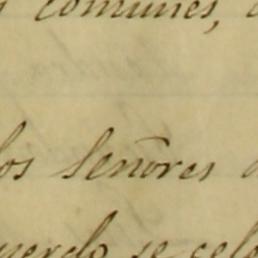 comunes,
los Señores
uerdo se cele